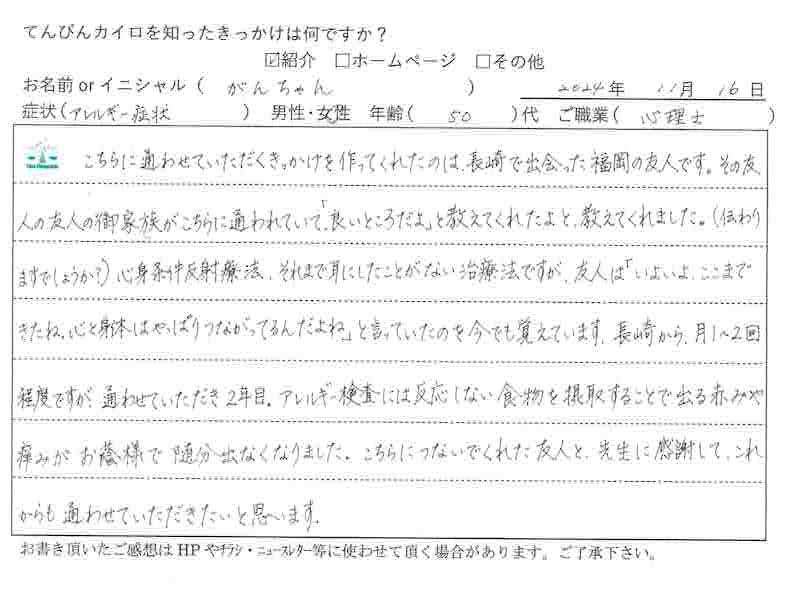 てんびんカイロを知ったきっかけは何ですか？
☑紹介　□ホームページ　□その他
お名前 or イニシャル（ がんちゃん ）　2024年 11月 16日
症状（アレルギー症状）　男性・女性　年齢（ 50 ）代　ご職業（ 心理士 ）
こちらに通わせていただくきっかけを作ってくれたのは、長崎で出会った福岡の友人です。その友
人の友人の御家族がこちらに通われていて、「良いところだよ」と教えてくれたよと、教えてくれました。（伝わり
ますでしょうか？）心身条件反射療法、それまで耳にしたことがない治療法ですが、友人は「いよいよ、ここまで
きたね。心と身体はやっぱりつながってるんだよね」と言っていたのを今でも覚えています。長崎から、月1～2回
程度ですが、通わせていただき2年目。アレルギー検査には反応しない食物を摂取することで出る赤みや
痒みがお蔭様で随分出なくなりました。こちらにつないでくれた友人と、先生に感謝して、これ
からも通わせていただきたいと思います。
お書き頂いたご感想はHPやﾁﾗｼ・ﾆｭｰｽﾚﾀｰ等に使わせて頂く場合があります。ご了承下さい。